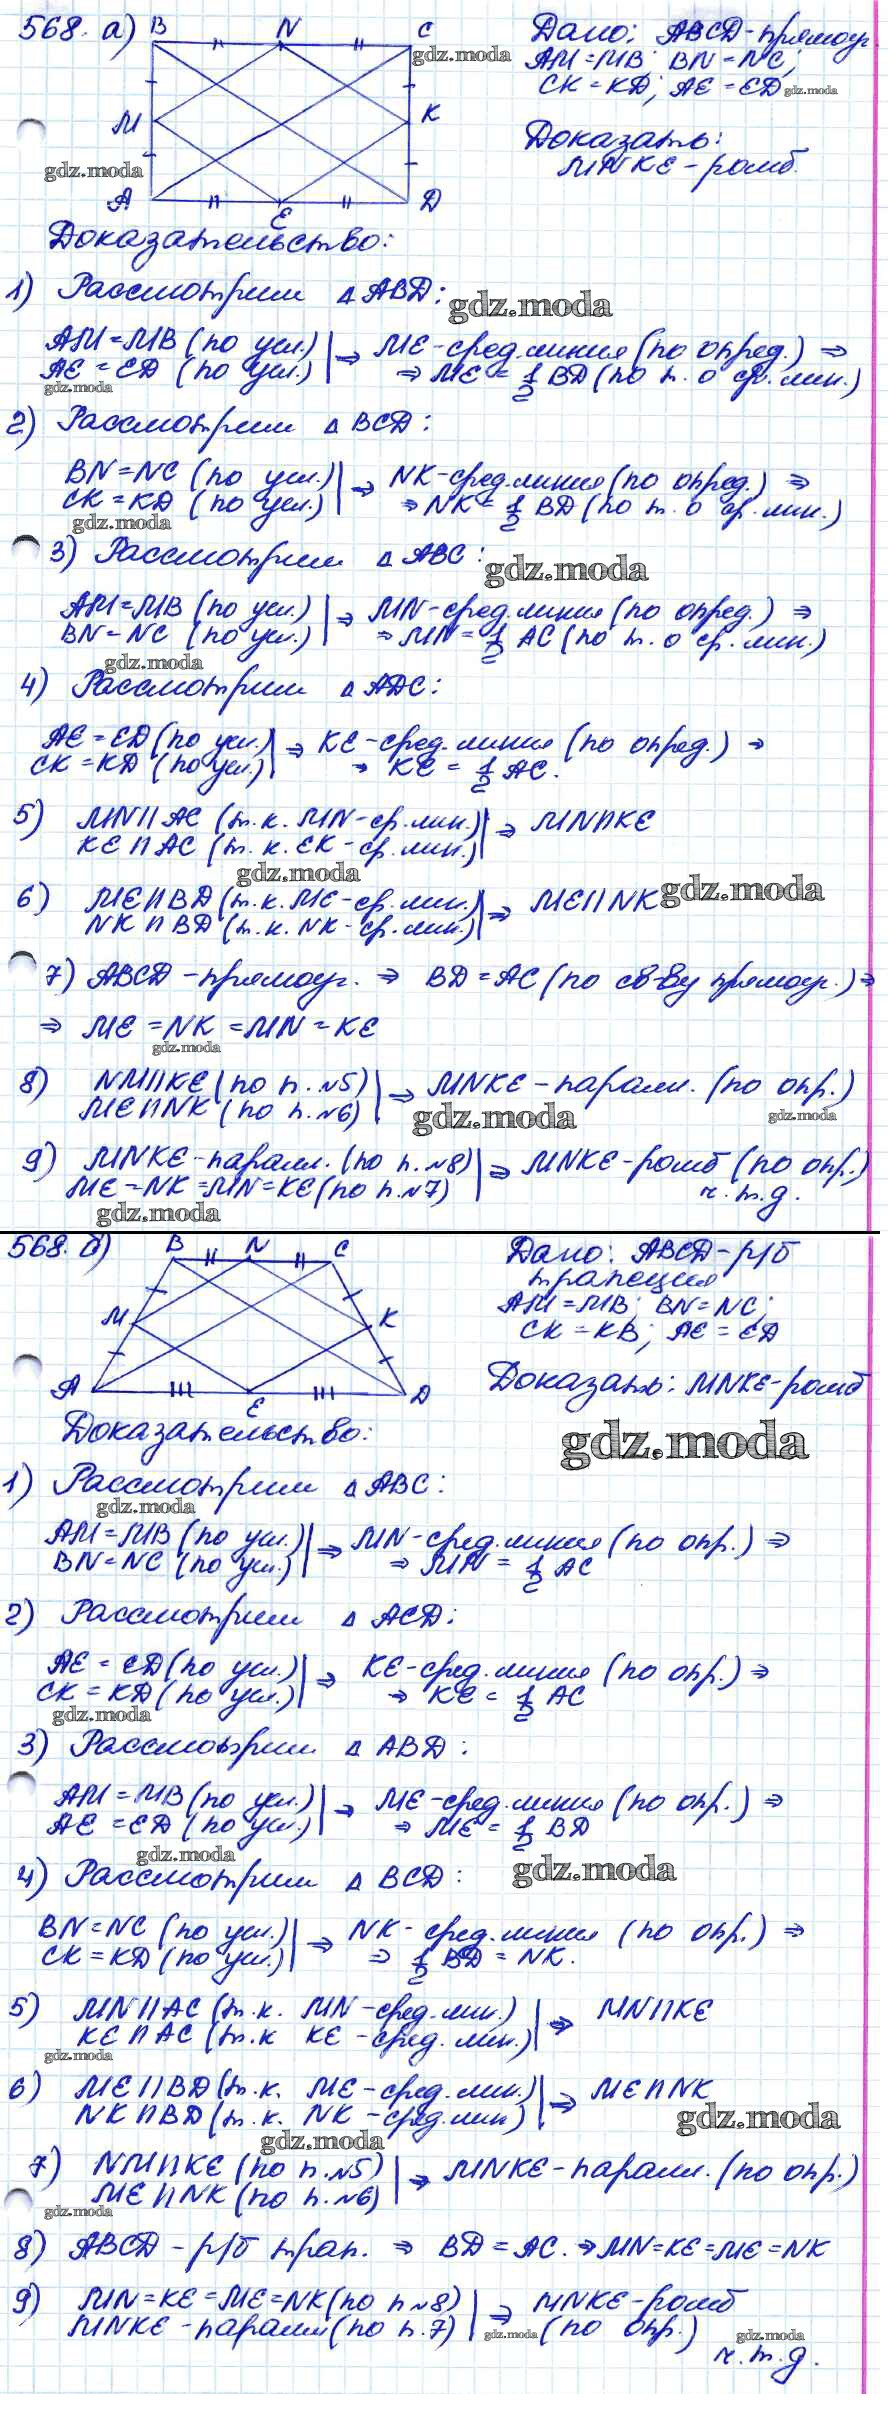 568. а) B N C Дано: ABCD - прямоуг.
gdz.moda AM = MB; BN = NC;
CK = KD; AE = ED gdz.moda
M K Доказать:
gdz.moda MNKE - ромб.
A E D
Доказательство:
1) Рассмотрим △ ABD: gdz.moda
AM = MB (по усл.) | ⇒ ME - сред. линия (по опред.) ⇒
AE = ED (по усл.) | ⇒ ME = 1/2 BD (по т. о ср. лин.)
gdz.moda
2) Рассмотрим △ BCD:
BN = NC (по усл.) | ⇒ NK - сред. линия (по опред.) ⇒
CK = KD (по усл.) | ⇒ NK = 1/2 BD (по т. о ср. лин.)
gdz.moda
3) Рассмотрим △ ABC: gdz.moda
AM = MB (по усл.) | ⇒ MN - сред. линия (по опред.) ⇒
BN = NC (по усл.) | ⇒ MN = 1/2 AC (по т. о ср. лин.)
gdz.moda
4) Рассмотрим △ ADC:
AE = ED (по усл.) | ⇒ KE - сред. линия (по опред.) ⇒
CK = KD (по усл.) | ⇒ KE = 1/2 AC.
5) MN || AC (т.к. MN - ср. лин.) | ⇒ MN || KE
KE || AC (т.к. EK - ср. лин.) |
gdz.moda
6) ME || BD (т.к. ME - ср. лин.) | ⇒ ME || NK gdz.moda
NK || BD (т.к. NK - ср. лин.) |
7) ABCD - прямоуг. ⇒ BD = AC (по св-ву прямоуг.) ⇒
⇒ ME = NK = MN = KE
gdz.moda
8) NM || KE (по п. №5) | ⇒ MNKE - паралл. (по опр.)
ME || NK (по п. №6) | gdz.moda gdz.moda
9) MNKE - паралл. (по п. №8) | ⇒ MNKE - ромб (по опр.)
ME = NK = MN = KE (по п. №7) | ч.т.д.
gdz.moda
568. б) B N C Дано: ABCD - р/б
трапеция
M K AM = MB; BN = NC;
CK = KB; AE = ED
A E D Доказать: MNKE - ромб
Доказательство: gdz.moda
1) Рассмотрим △ ABC:
gdz.moda
AM = MB (по усл.) | ⇒ MN - сред. линия (по опр.) ⇒
BN = NC (по усл.) | ⇒ MN = 1/2 AC
2) Рассмотрим △ ACD:
AE = ED (по усл.) | ⇒ KE - сред. линия (по опр.) ⇒
CK = KD (по усл.) | ⇒ KE = 1/2 AC
gdz.moda
3) Рассмотрим △ ABD:
AM = MB (по усл.) | ⇒ ME - сред. линия (по опр.) ⇒
AE = ED (по усл.) | ⇒ ME = 1/2 BD
gdz.moda
4) Рассмотрим △ BCD: gdz.moda
BN = NC (по усл.) | ⇒ NK - сред. линия (по опр.) ⇒
CK = KD (по усл.) | ⇒ 1/2 BD = NK.
5) MN || AC (т.к. MN - сред. лин.) | ⇒ MN || KE
KE || AC (т.к KE - сред. лин.) |
gdz.moda
6) ME || BD (т.к. ME - сред. лин.) | ⇒ ME || NK
NK || BD (т.к. NK - сред. лин) | gdz.moda
gdz.moda
7) NM || KE (по п. №5) | ⇒ MNKE - паралл. (по опр.)
ME || NK (по п. №6) |
gdz.moda
8) ABCD - р/б трап. ⇒ BD = AC. ⇒ MN = KE = ME = NK
9) MN = KE = ME = NK (по п №8) | ⇒ MNKE - ромб
MNKE - паралл (по п. 7) | gdz.moda (по опр.) gdz.moda
ч.т.д.